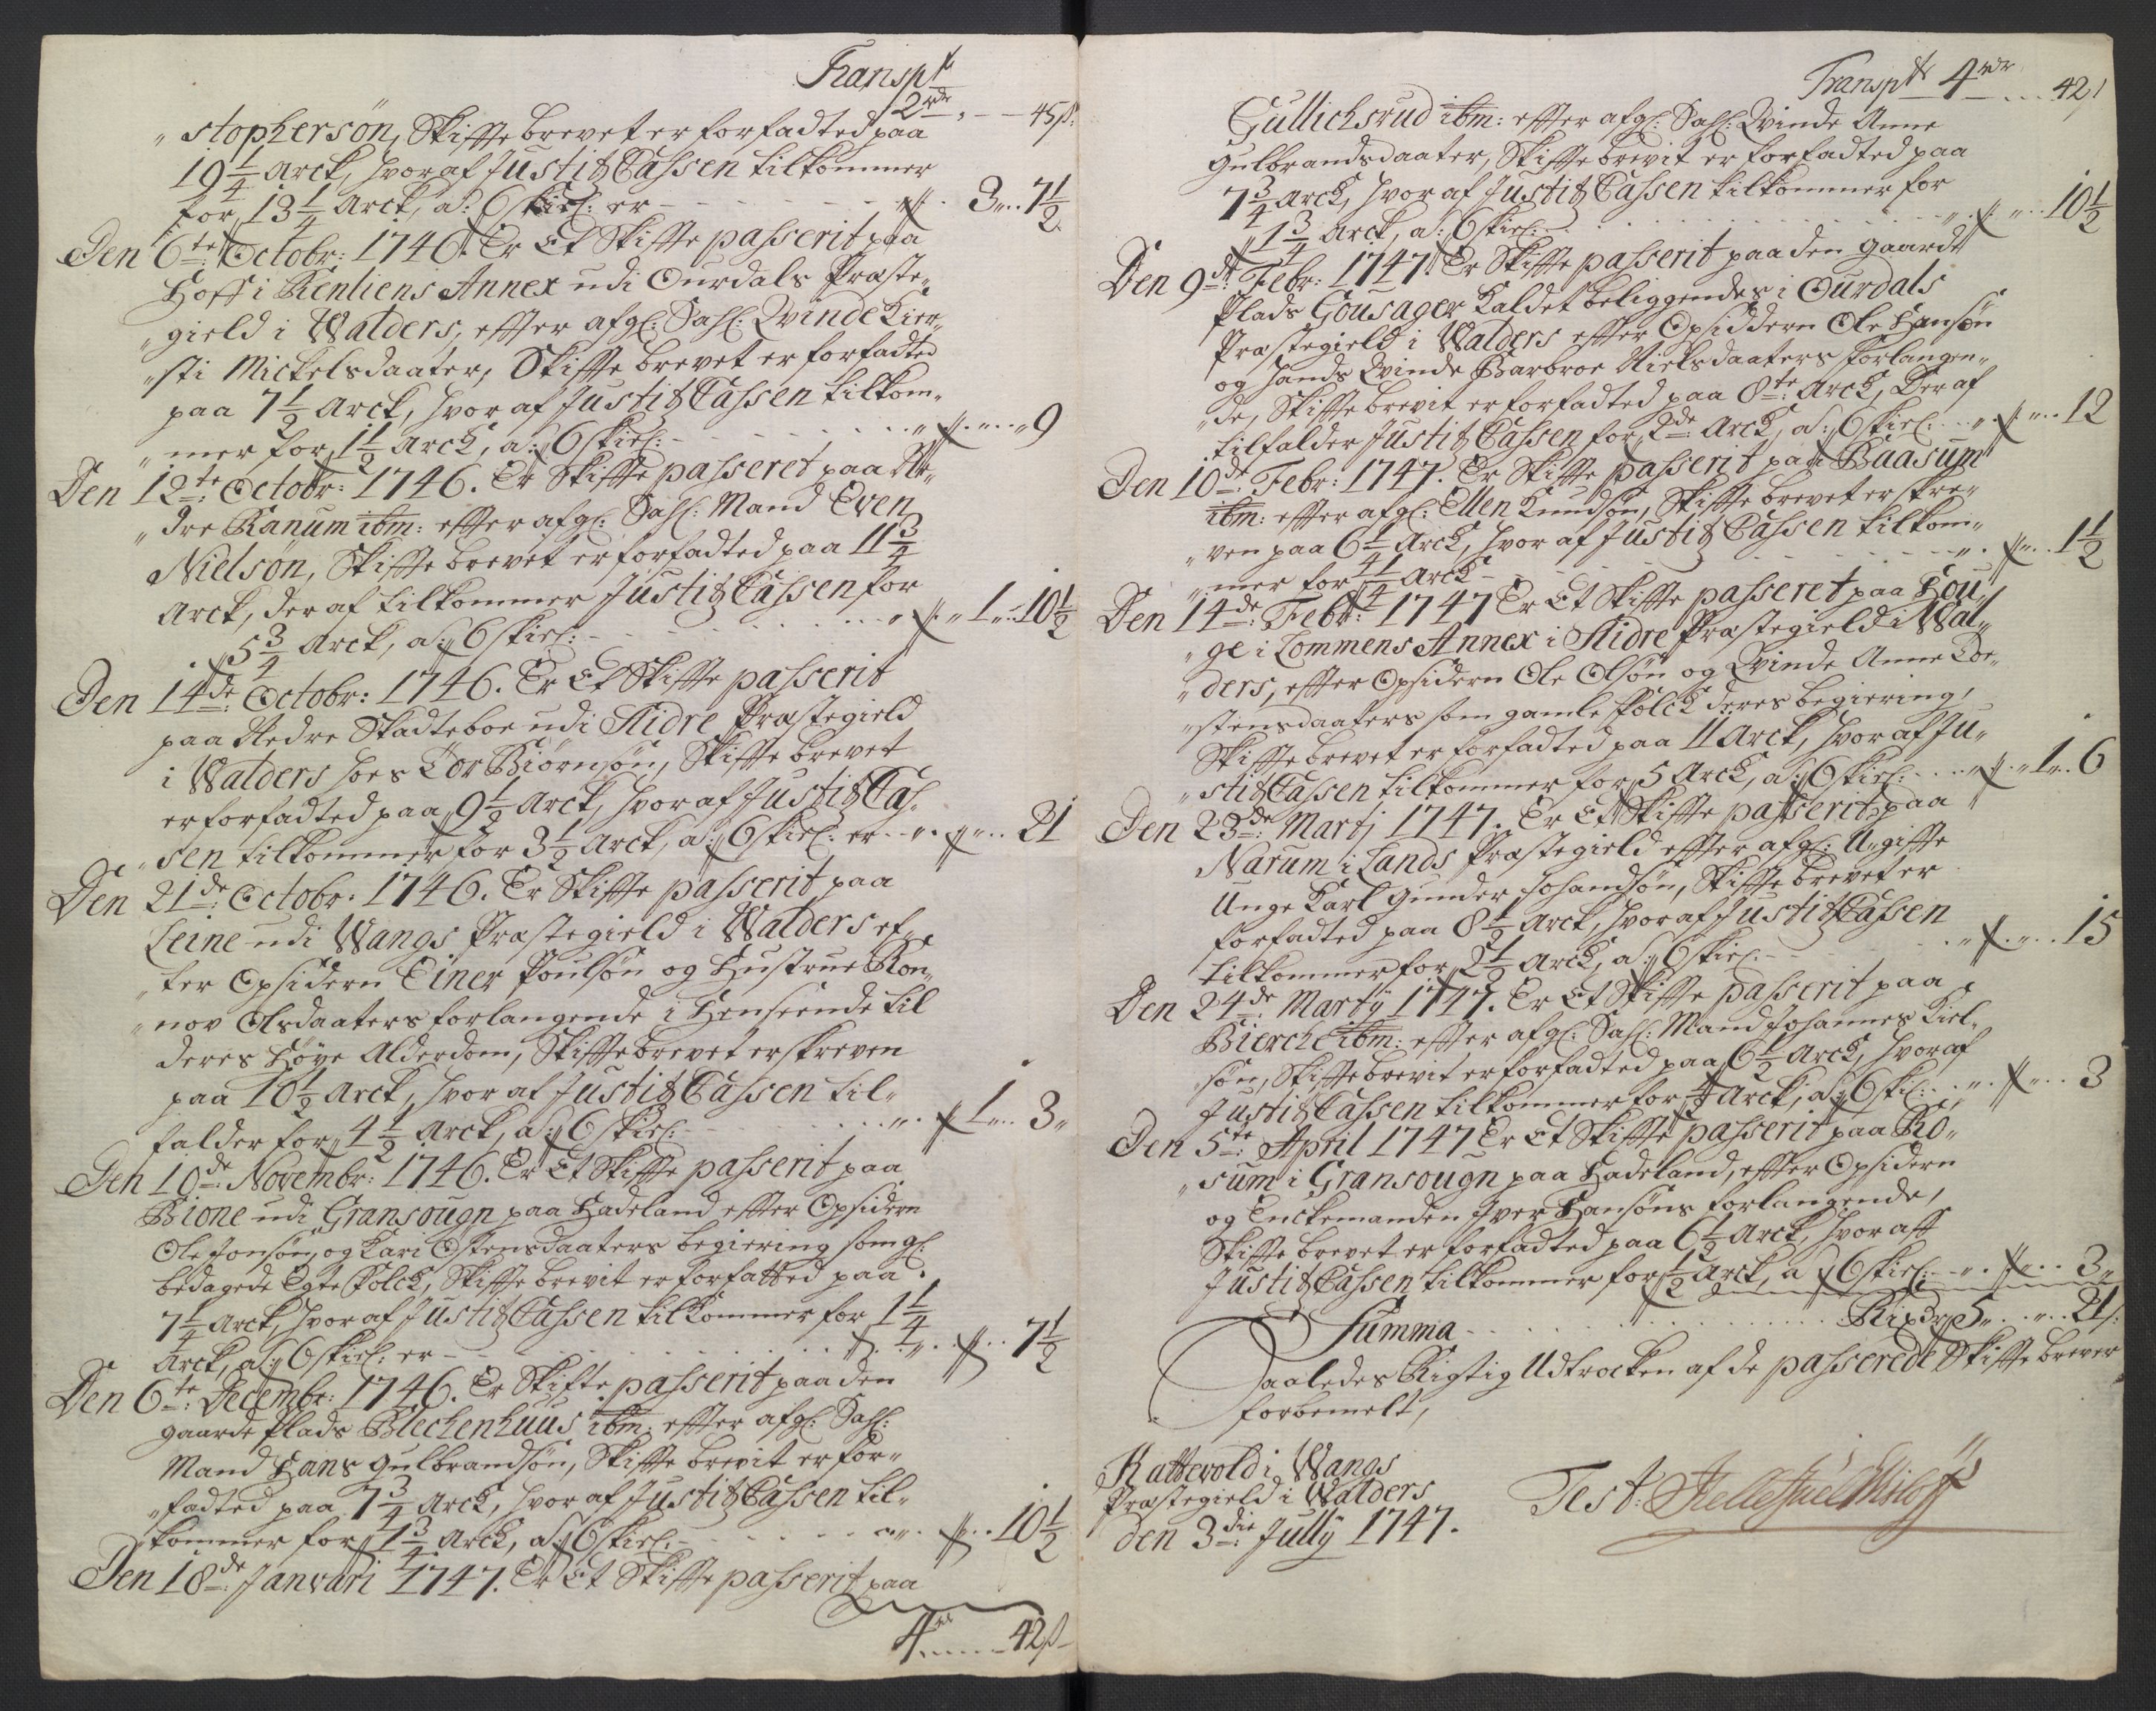 Transp<sup>t</sup>
2 rd<sup>r</sup> „ — 45 ß:
„stophersön, Skiftebrevet er forfadted paa
19 1/4 Arck, hvoraf Justitz Cassen tilkommer
for 13 1/4 Arck, a: 6 skiel: er - - - 3 „ 7 1/2
Den 6<sup>te</sup>: Octobr: 1746. Er Et Skifte passerit paa
Hoff i Renliens Annex udi Ourdals Præste„
„gield i Walders, effter afg: Sahl: Qvinde Kier„
„sti Mickelsdaater, Skiftebrevet er forfadted
paa 7 1/2 Arck, hvoraf Justitz Cassen tilkom„
„mer for 1 1/2 Arck, a: 6 skiel: - - - 9
Den 12<sup>te</sup>: Octobr: 1746. Er Skifte passeret paa Ne„
„dre Ranum ibm: effter afg: Sahl: Mand Even
Nielsön, Skiftebrevet er forfadted paa 11 3/4
Arck, deraf tilkommer Justitz Cassen for
5 3/4 Arck, a: 6 skiel: - - - 1 „ 10 1/2
Den 14<sup>de</sup>: Octobr: 1746. Er Et Skifte passerit
paa Nedre Skadteboe udi Slidre Præstegield
i Walders hoes Tor Biørnsön, Skiftebrevet
er forfadted paa 9 1/2 Arck, hvoraf Justitz Cas„
„sen tilkommer for 3 1/2 Arck, a: 6 skiel: er - - - 21
Den 21<sup>de</sup>: Octobr: 1746. Er Skifte passerit paa
Leine udi Wangs Præstegield i Walders ef„
„ter Opsidern Einer Poulsön og Hustrue Ron„
„nov Olsdaaters forlangende i Henseende til
deres Høye Alderdom, Skiftebrevet er skreven
paa 10 1/2 Arck, hvoraf Justitz Cassen til„
falder for 4 1/2 Arck, a: 6 skiel: - - - 1 „ 3 „
Den 10<sup>de</sup>: Novembr: 1746. Er Et Skifte passerit paa
Bione udi Gransougn paa Hadeland effter Opsidern
Ole Jonsön og Kari Ostensdaaters begiering som gl:
bedagede Egte Folck, Skiftebrevit er forfatted paa
7 1/4 Arck, hvoraf Justitz Cassen tilkommer for 1 1/4
Arck, a: 6 skiel: er - - - 7 1/2
Den 6<sup>te</sup>: Decembr: 1746. Er Skifte passerit paa den
gaarde Plads Blechenhuus ibm: effter afg: Sahl:
Mand Hans Gulbrandsön, Skiftebrevit er for„
„fadted paa 7 3/4 Arck, hvoraf Justitz Cassen til„
„kommer for 1 3/4 Arck, a: 6 skiel: - - - 10 1/2
Den 18<sup>de</sup>: Januari 1747. Er Et Skifte passerit paa
4 rd „ — 42 ß
Transp<sup>t</sup> 4 rdr - - 42 /
Gullichsrud ibm: effter afg: Sahl: Qvinde Anne
Gulbrandsdaater, Skiftebrevit er forfadted paa
7 3/4 Arck, hvoraf Justitz Cassen tilkommer for
1 3/4 Arck, a: 6 skiel: - - - 10 1/2
Den 9<sup>de</sup>: Febr: 1747. Er Skifte passerit paa den gaarde
Plads Gousager kaldet beliggendes i Ourdals
Præstegield i Walders effter Opsiddern Ole Hansön
og hands Qvinde Barbroe Nielsdaaters forlangen„
„de, Skiftebrevit er forfadted paa 8<sup>te</sup>: Arck, Deraf
tilfalder Justitz Cassen for 2<sup>de</sup> Arck, a: 6 skiel: - - - 12
Den 10<sup>de</sup>: Febr: 1747. Er Skifte passerit paa Baasum
ibm: effter afg: Ellen Knudsön, Skiftebrevet er skre„
„ven paa 6 1/4 Arck, hvoraf Justitz Cassen tilkom„
„mer for 1/4 Arck - - - 1 1/2
Den 14<sup>de</sup>: Febr: 1747 Er Et Skifte passeret paa Hou„
„ge i Lommens Annex i Slidre Præstegield i Wal„
„ders, effter Opsidern Ole Olsön og Qvinde Anne Tor„
„stensdaaters som gamle Folck deres begiering,
Skiftebrevet er forfadted paa 11 Arck, hvoraf Ju„
„stitz Cassen tilkommer for 5 Arck, a: 6 skiel: - - - 1 „ 6
Den 23<sup>de</sup>: Martj 1747. Er Et Skifte passerit paa
Narum i Lands Præstegield effter afg: U„gifte
Unge Karl Gunder Johandsön, Skiftebrevet er
forfadted paa 8 1/2 Arck, hvoraf Justitz Cassen
tilkommer for 2 1/2 Arck, a: 6 skiel: - - - 15
Den 24<sup>de</sup>: Martij 1747. Er Et Skifte passerit paa
Bierche ibm: effter afg: Sahl: Mand Johannes Kiel„
„sön, Skiftebrevit er forfadted paa 6 1/2 Arck, hvoraf
Justitz Cassen tilkommer for 1/2 Arck, a: 6 skiel: - - - 3
Den 5<sup>te</sup>: April 1747 Er Et Skifte passerit paa Rö„
„sum i Gransougn paa Hadeland, effter Opsidern
og Enckemanden Iver Hansöns forlangende,
Skiftebrevet er forfadted paa 6 1/2 Arck, hvoraff
Justitz Cassen tilkommer for 1/2 Arck, a 6 skiel: - - - 3 „
Summa - - - Rixdr 5 „ - 21 ß:
Saaledes Rigtig Udtrocken af de passerede Skiftebrever
forbemelt,
Kattevold i Wangs
Præstegield i Walders
den 3<sup>die</sup>: Jully 1747.
Test: